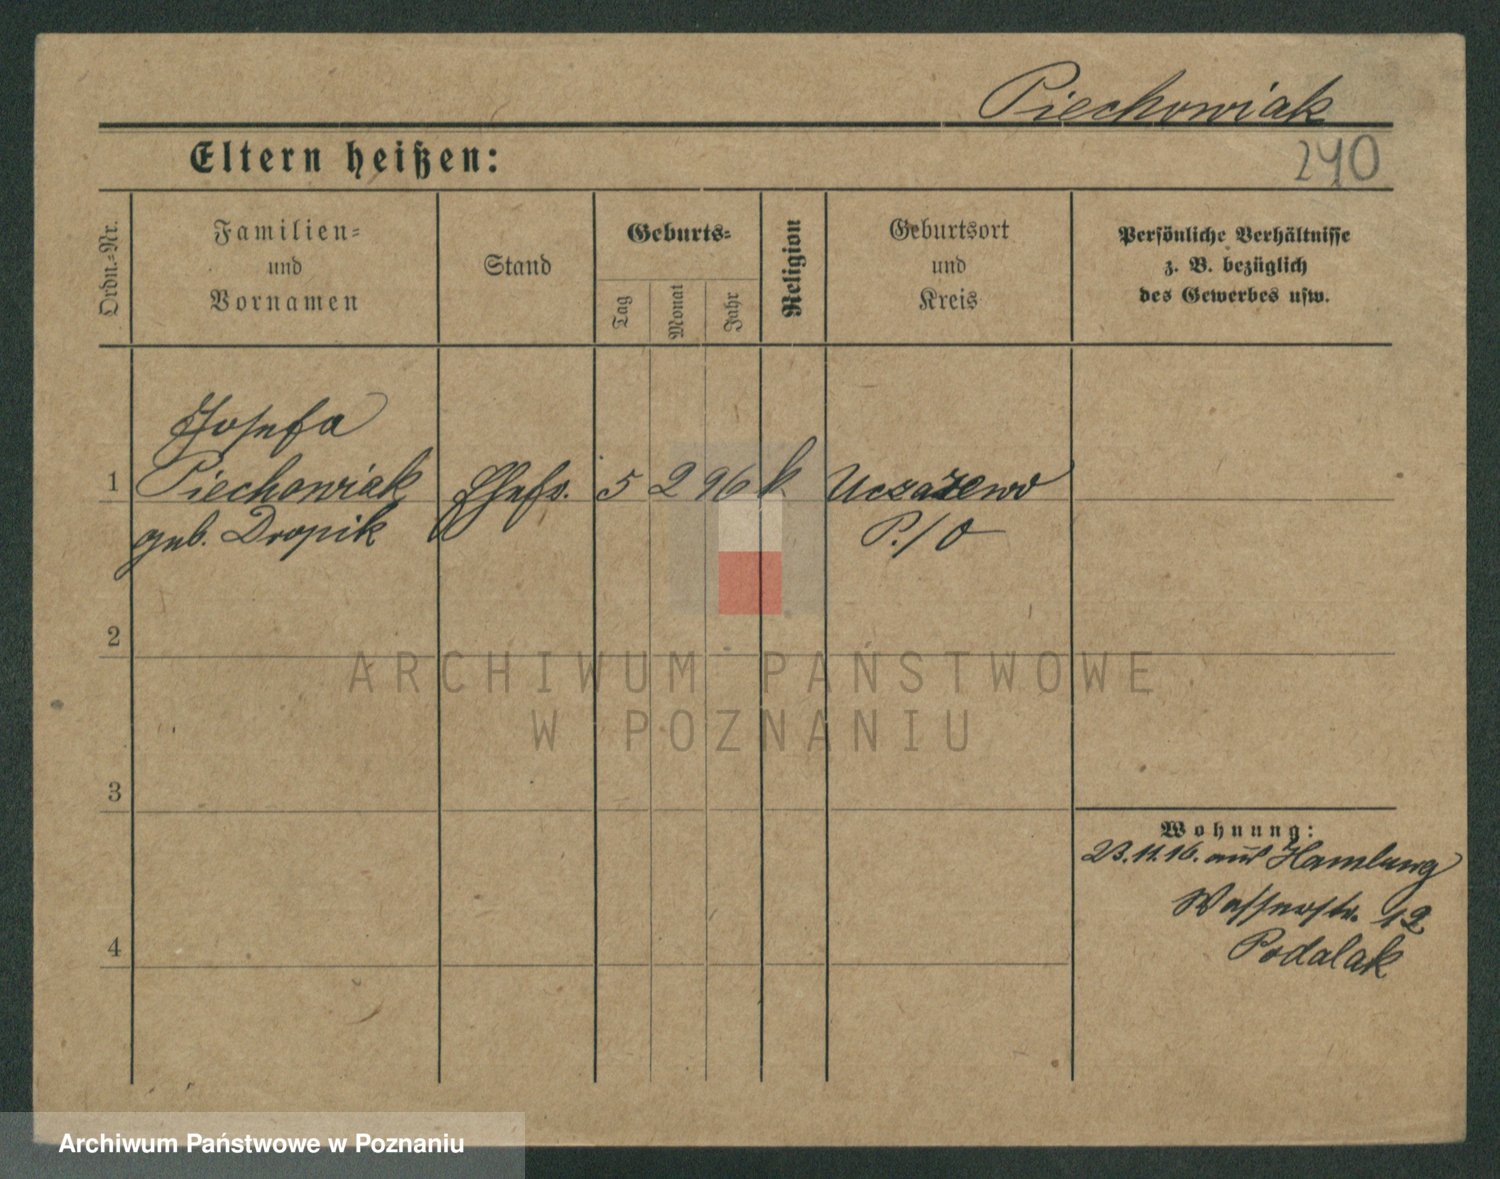 Piechowiak
240
Eltern heißen:
Ordn.-Nr.
Familien-
und
Vornamen
Stand
Geburts-
Tag
Monat
Jahr
Religion
Geburtsort
und
Kreis
Persönliche Verhältnisse
z. B. bezüglich
des Gewerbes usw.
Josefa
1 Piechowiak Ehefr. 5 2 96 k Uczazewo
geb. Dropik P./O
2
3
4
Wohnung:
23.11.16. aus Hamburg
Wasserstr. 12
Podalak
ARCHIWUM PAŃSTWOWE
W POZNANIU
Archiwum Państwowe w Poznaniu